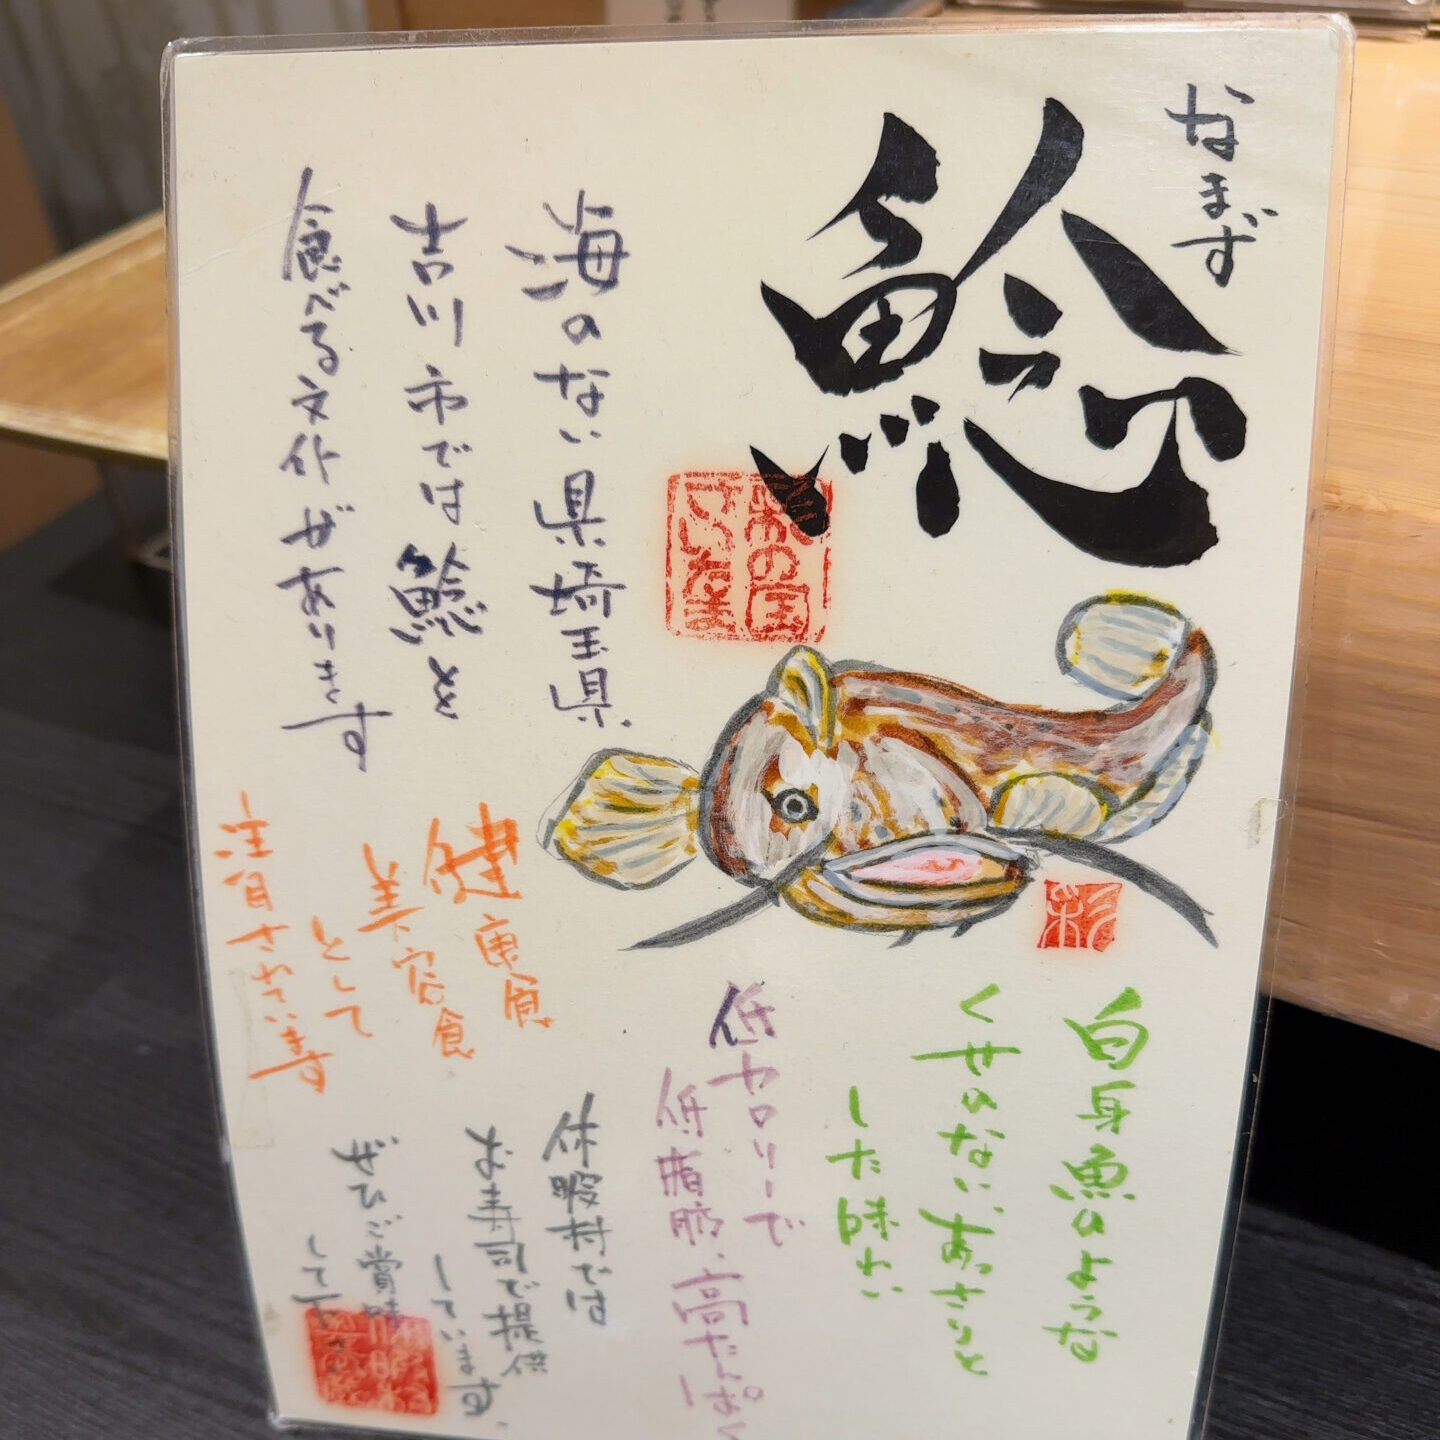 なまず
鯰
彩の国
さいたま
海のない県埼玉県
吉川市では鯰を
食べる文化があります
白身魚のような
くせのない、あっさりと
した味わい
低カロリーで
低脂肪、高たんぱく
健康食
美容食
として
注目されています
休暇村では
お寿司で提供
しています。
ぜひご賞味
して下さ